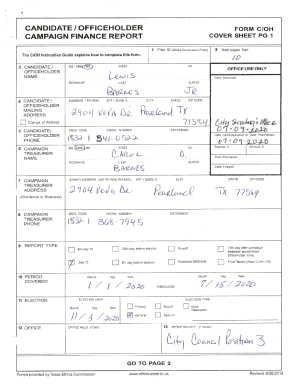 CANDIDATE / OFFICEHOLDER
CAMPAIGN FINANCE REPORT
FORM C/OH
COVER SHEET PG 1
The C/OH Instruction Guide explains how to complete this form.
1 Filer ID (Ethics Commission Filers)
2 Total pages filed:
10
3 CANDIDATE / OFFICEHOLDER NAME
FIRST
MI
Lewis
NICKNAME
LAST
SUFFIX
BARNES
JR
OFFICE USE ONLY
Date Received
4 CANDIDATE / OFFICEHOLDER MAILING ADDRESS
Change of Address
ADDRESS / PO BOX; APT / SUITE #; CITY; STATE; ZIP CODE
2904 Vera Dr Pearland TX
77584
City Secretary's Office
07-09-2020
5 CANDIDATE/ OFFICEHOLDER PHONE
AREA CODE
PHONE NUMBER
EXTENSION
(832) 541-0522
Date Hand-delivered or Date Postmarked
07-09-2020
6 CAMPAIGN TREASURER NAME
FIRST
MI
Carol
D.
NICKNAME
LAST
SUFFIX
BARNES
Receipt #
Amount $
Date Processed
Date Imaged
7 CAMPAIGN TREASURER ADDRESS
(Residence or Business)
STREET ADDRESS (NO PO BOX PLEASE); APT / SUITE #; CITY; STATE; ZIP CODE
2904 Vera Dr Pearland TX 77584
8 CAMPAIGN TREASURER PHONE
AREA CODE
PHONE NUMBER
EXTENSION
(832) 368-7945
9 REPORT TYPE
January 15
30th day before election
Runoff
15th day after campaign treasurer appointment (Officeholder Only)
July 15
8th day before election
Exceeded $500 limit
Final Report (Attach C/OH - FR)
10 PERIOD COVERED
Month Day Year
1 / 1 / 2020
THROUGH
Month Day Year
7 / 15 / 2020
11 ELECTION
ELECTION DATE
Month Day Year
11 / 3 / 2020
ELECTION TYPE
Primary
Runoff
Other Description
General
Special
12 OFFICE
OFFICE HELD (if any)
13 OFFICE SOUGHT (if known)
City Council Position 3
GO TO PAGE 2
Forms provided by Texas Ethics Commission
www.ethics.state.tx.us